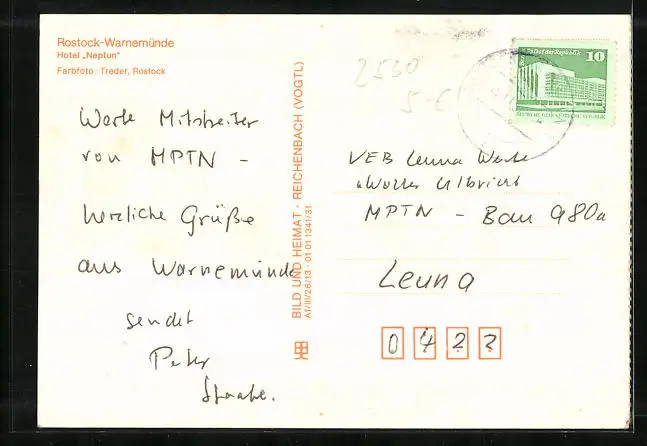 Rostock-Warnemünde
Hotel „Neptun"
Farbfoto: Treder, Rostock
Werte Mitstreiter
von MPTN –
herzliche Grüße
aus Warnemünde
sendet
Peter
BILD UND HEIMAT · REICHENBACH (VOGTL)
A1/III/26/13 · 01 01 1341/31
2530
5-E
Palast der Republik 10
DEUTSCHE DEMOKRATISCHE REPUBLIK
VEB Leuna Werke
"Walter Ulbricht
MPTN – Bau 980a
Leuna
0422